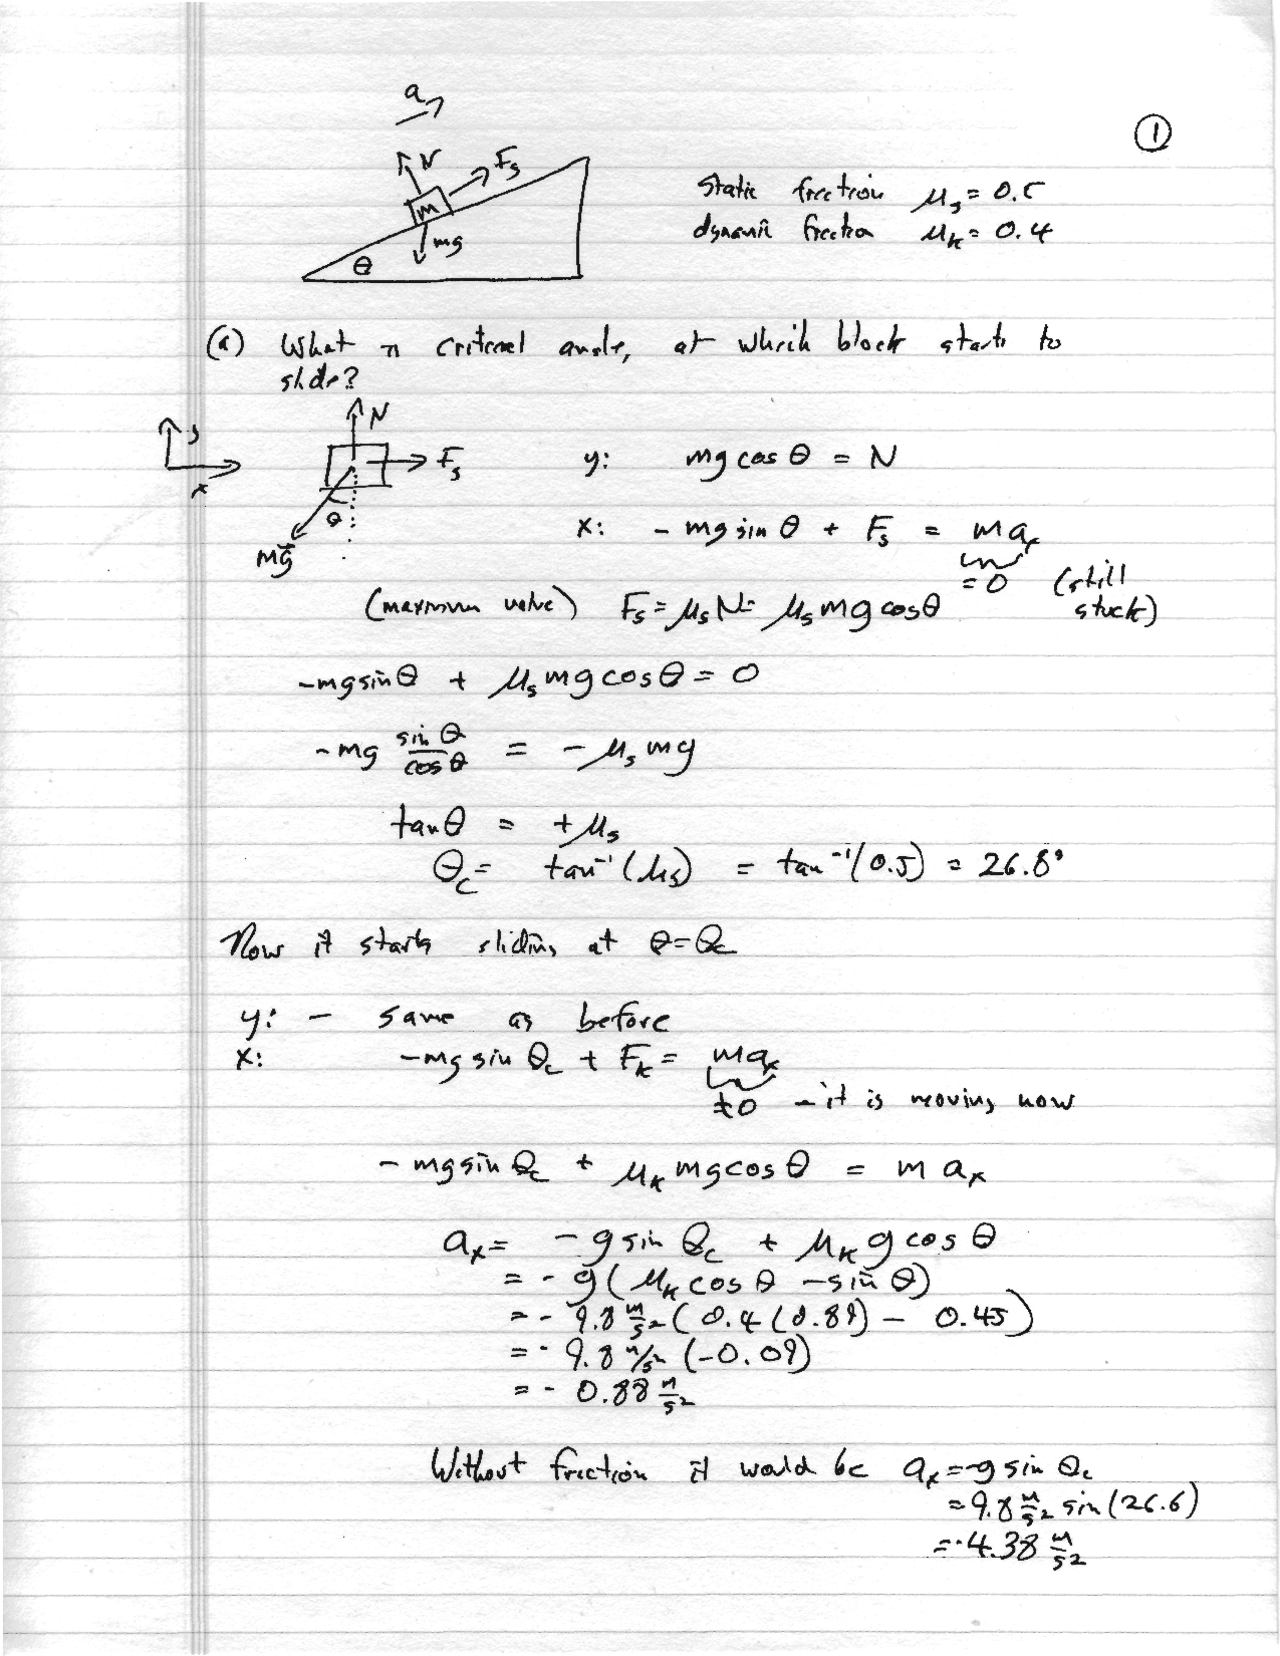 a
①
N
Fs
m
mg
θ
static friction μs = 0.5
dynamic friction μk = 0.4
(a) What is critical angle, at which block starts to
slide?
y
x
N
Fs
θ
mg⃗
y: mg cos θ = N
x: - mg sin θ + Fs = max
= 0 (still
stuck)
(maximum value) Fs = μsN = μs mg cosθ
-mg sin θ + μs mg cos θ = 0
-mg sin θ / cos θ = - μs mg
tan θ = + μs
θc = tan⁻¹(μs) = tan⁻¹(0.5) = 26.8°
Now it starts sliding at θ = θc
y: - same as before
x: -mg sin θc + Fk = max
≠0 - it is moving now
- mg sin θc + μk mg cos θ = m ax
ax = - g sin θc + μk g cos θ
= - g ( μk cos θ - sin θ)
= - 9.8 m/s² ( 0.4 (0.89) - 0.45 )
= - 9.8 m/s² (-0.09)
= - 0.88 m/s²
Without friction it would be ax = -g sin θc
= 9.8 m/s² sin (26.6)
= -4.38 m/s²